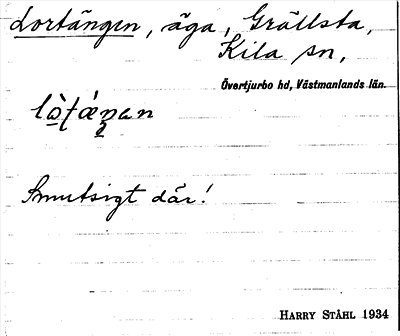 Lortängen, äga, Grällsta,
Kila sn,
Övertjurbo hd, Västmanlands län.
Smutsigt där!
HARRY STÅHL 1934